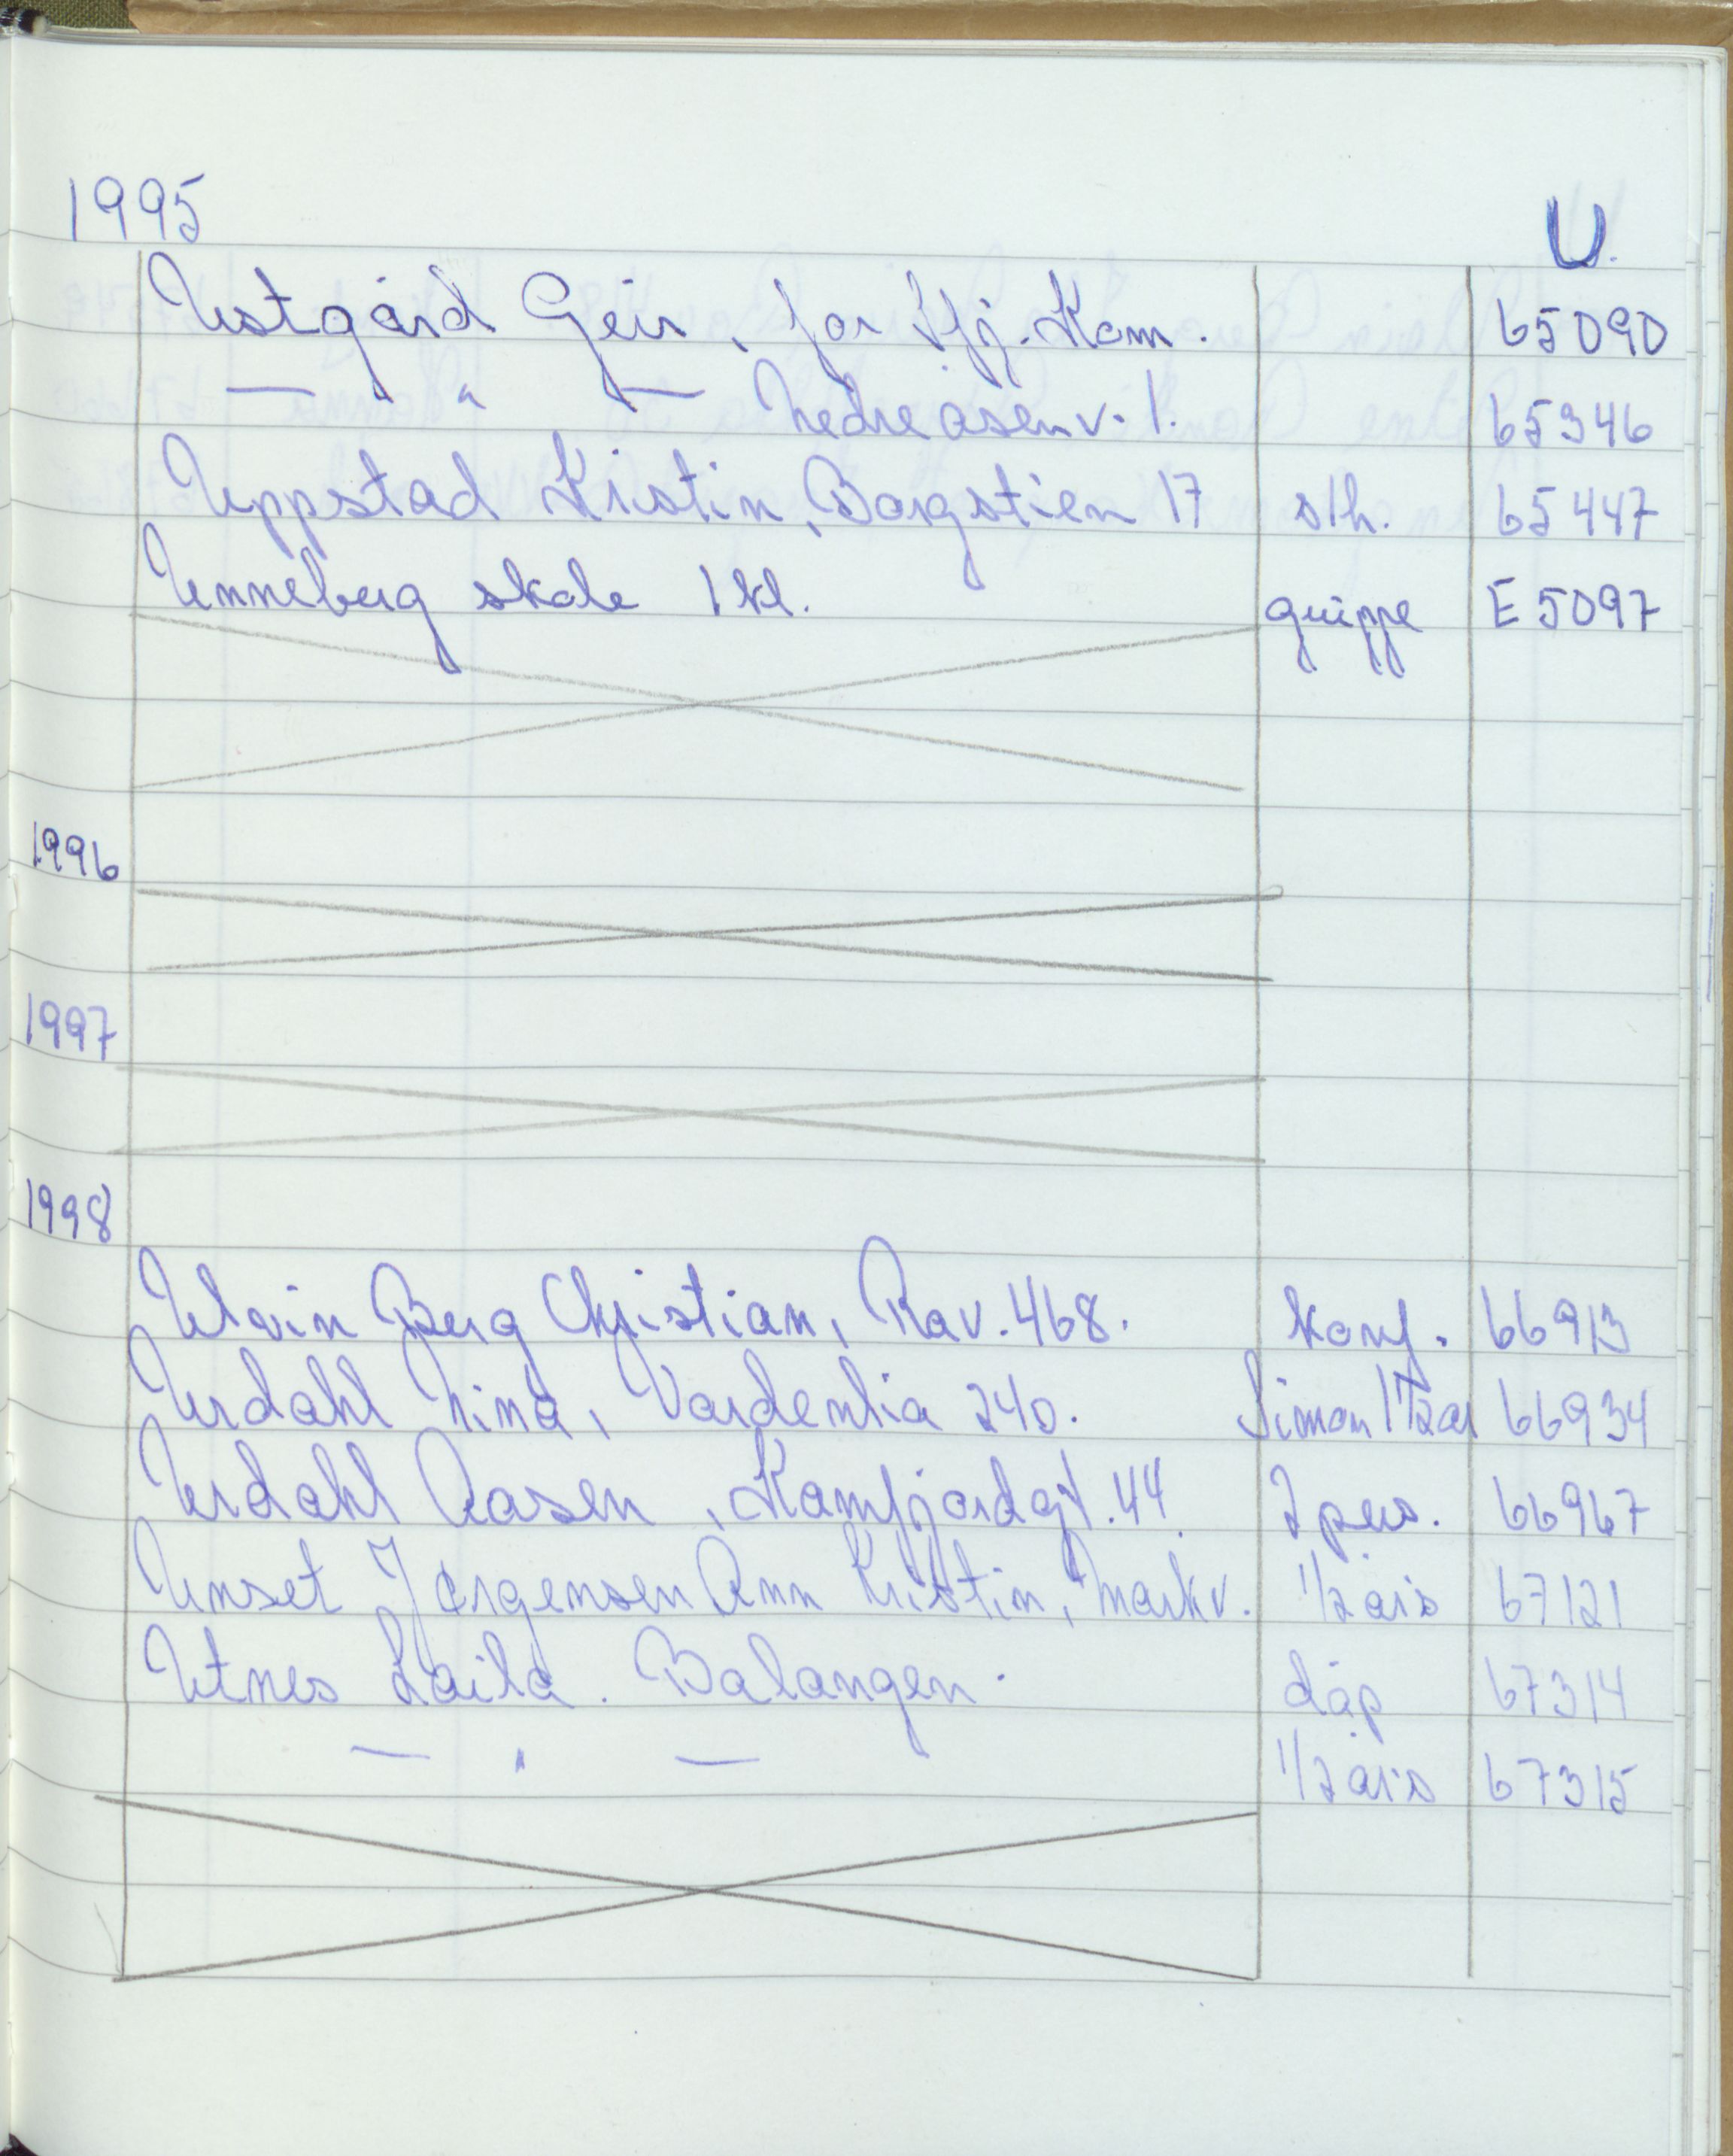 1995
U.
Ustgård Geir, for Sfj. Kom. 65090
— " — Nedre åsenv. 1. 65346
Uppstad Kristin, Borgstien 17 sth. 65447
Unneberg skole 1 kl. gruppe E5097
1996
1997
1998
Ulvin Berg Christian, Rav. 468. Konf. 66913
Urdahl Nina, Vardenlia 240. Simon 1 1/2 år 66934
Urdahl Aasen, Kamfjordgt. 44. 2 pers. 66967
Unset Jørgensen Ann Kristin, Markv. 1/2 års 67121
Utnes Laila. Balangen. dåp 67314
— " — 1/2 års 67315